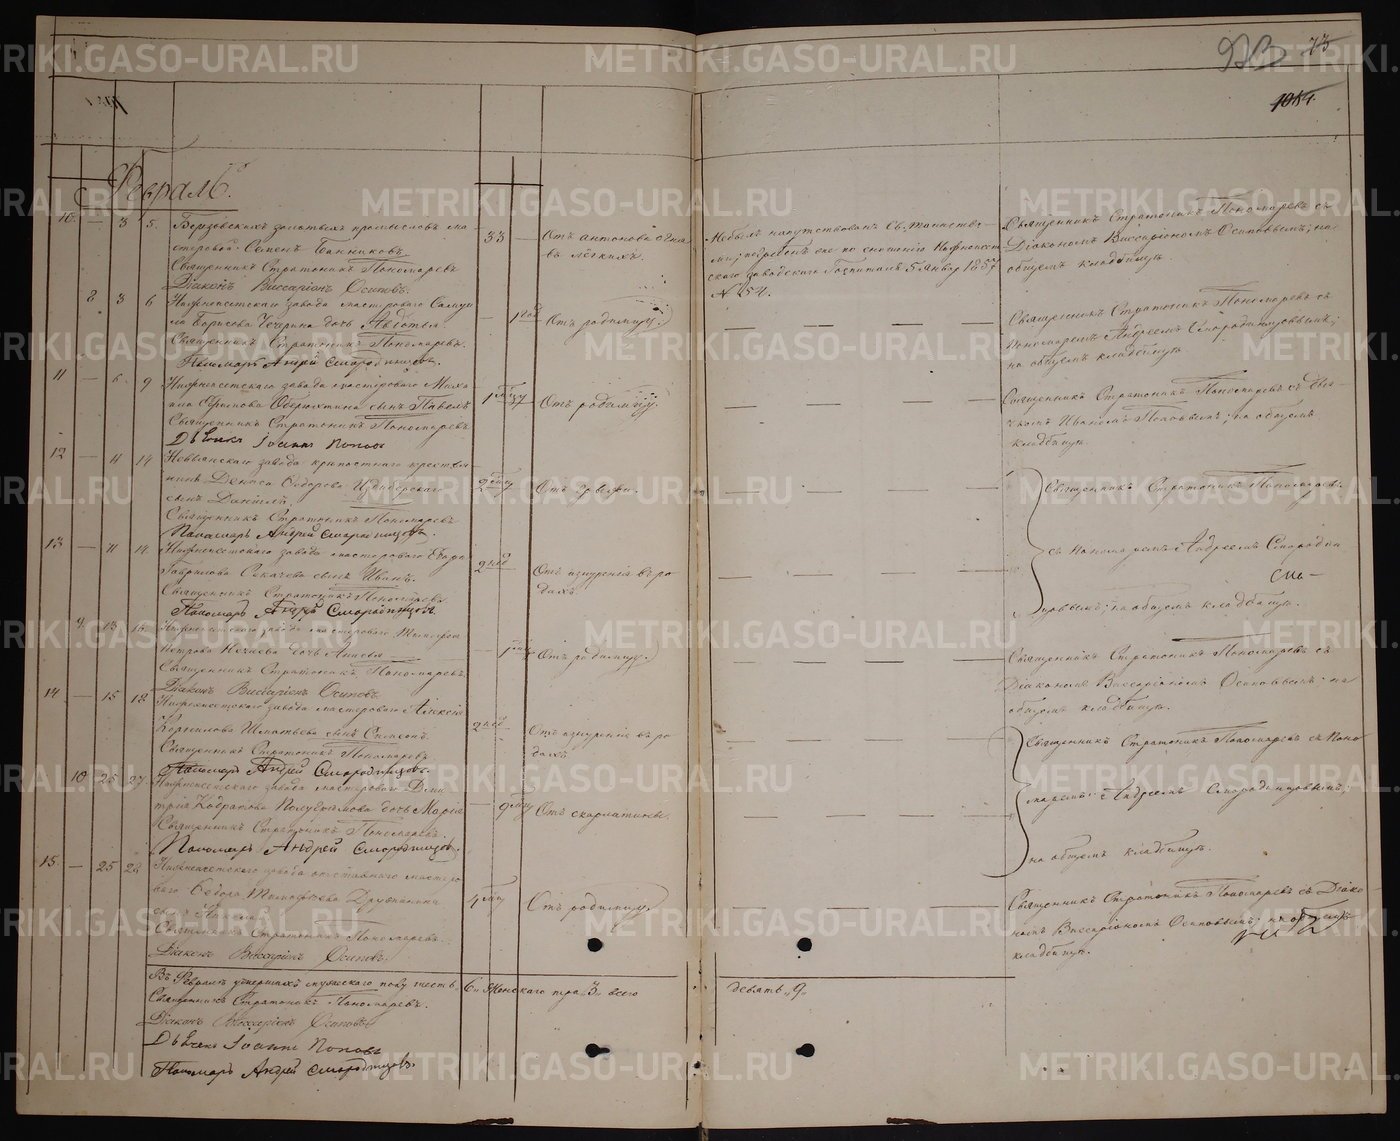 73
1084.
Февраль.
10. — 3 5. Березовскихъ золотыхъ промысловъ ма-
стеровой Семенъ Банниковъ.
Священникъ Стратоникъ Пономаревъ
Діаконъ Виссаріонъ Осиповъ.
33 —
Отъ антонова огня
въ легкихъ.
Небылъ напутствованъ Св. таинство-
ми; погребенъ по сношенію Нижнеисет-
скаго заводскаго Госпиталя 5 Январ 1857
№ 54.
Священникъ Стратоникъ Пономаревъ съ
Діакономъ Виссаріономъ Осиповымъ; на
общемъ кладбищѣ.
— 8 3 6 Нижнеисетскаго завода мастероваго Самуи
ла Борисова Чечерина дочь Авдотья.
Священникъ Стратоникъ Пономаревъ.
Пономарь Андрей Смородинцовъ.
— 1 год
Отъ родимцу.
— — — —
Священникъ Стратоникъ Пономаревъ съ
Пономаремъ Андреемъ Смородинцовымъ;
на общемъ кладбищѣ
11 — 6. 9 Нижнеисетскаго завода мастероваго Миха
ила Ефимова сынъ Павелъ
Священникъ Стратоникъ Пономаревъ
Дьячекъ Іоаннъ Поповъ
Отъ родимцу.
— — — —
Священникъ Стратоникъ Пономаревъ съ Дья-
чкомъ Иваномъ Поповымъ; на общемъ
кладбищѣ.
12 — 11 14 Невьянскаго завода крѣпостнаго крестья
нина Дениса Федорова
сынъ Даніилъ.
Священникъ Стратоникъ Пономаревъ
Пономарь Андрей Смородинцовъ.
2 мцу
Отъ грыжи.
— — — —
Священникъ Стратоникъ Пономарев.
13 — 11 14 Нижнеисетскаго завода мастероваго
Гаврилова Секачева сынъ Иванъ.
Священникъ Стратоникъ Пономаревъ
Пономарь Андрей Смородинцовъ
2 нед
Отъ изнуренія въ ро
дахъ.
— — — —
съ Пономаремъ Андреемъ Смородин
цовымъ; на общемъ кладбищѣ.
9. 13 Нижнеисетскаго завода мастероваго
Петрова Нечаева дочь Анисья
Священникъ Стратоникъ Пономаревъ,
Діаконъ Виссаріонъ Осиповъ
— 1
Отъ родимцу.
— — — —
Священникъ Стратоникъ Пономаревъ съ
Діакономъ Виссаріономъ Осиповымъ на
общемъ кладбищѣ.
14 — 15 18. Нижнеисетскаго завода мастероваго Алексѣя
Корнилова сынъ Симеонъ.
Священникъ Стратоникъ Пономаревъ
Пономарь Андрей Смородинцовъ.
2 нед
Отъ изнуренія въ ро
дахъ
— — — —
Священникъ Стратоникъ Пономаревъ съ Поно
— 10 25 27 Нижнеисетскаго завода мастероваго Дми
трія Кодратова дочь Марія
Священникъ Стратоникъ Пономаревъ.
Пономарь Андрей Смородинцовъ.
— 9 мцу
Отъ скарлатины.
— — — —
маремъ Андреемъ Смородинцовымъ;
на общемъ кладбищѣ.
15. — 25 28 Нижнеисетскаго завода отставнаго мастеро
ваго Федора Тимофеева Дружинина
сынъ
Священникъ Стратоникъ Пономаревъ.
Діаконъ Виссаріонъ Осиповъ.
4 мцу
Отъ родимцу.
— — — —
Священникъ Стратоникъ Пономаревъ съ Діако
номъ Виссаріономъ Осиповымъ; на общемъ
кладбищѣ.
Въ Февралѣ умершихъ мужескаго полу шесть 6. Женскаго три „3„ всего девять „9„
Священникъ Стратоникъ Пономаревъ.
Діаконъ Виссаріонъ Осиповъ
Дьячекъ Іоаннъ Поповъ
Пономарь Андрей Смородинцовъ.
METRIKI.GASO-URAL.RU